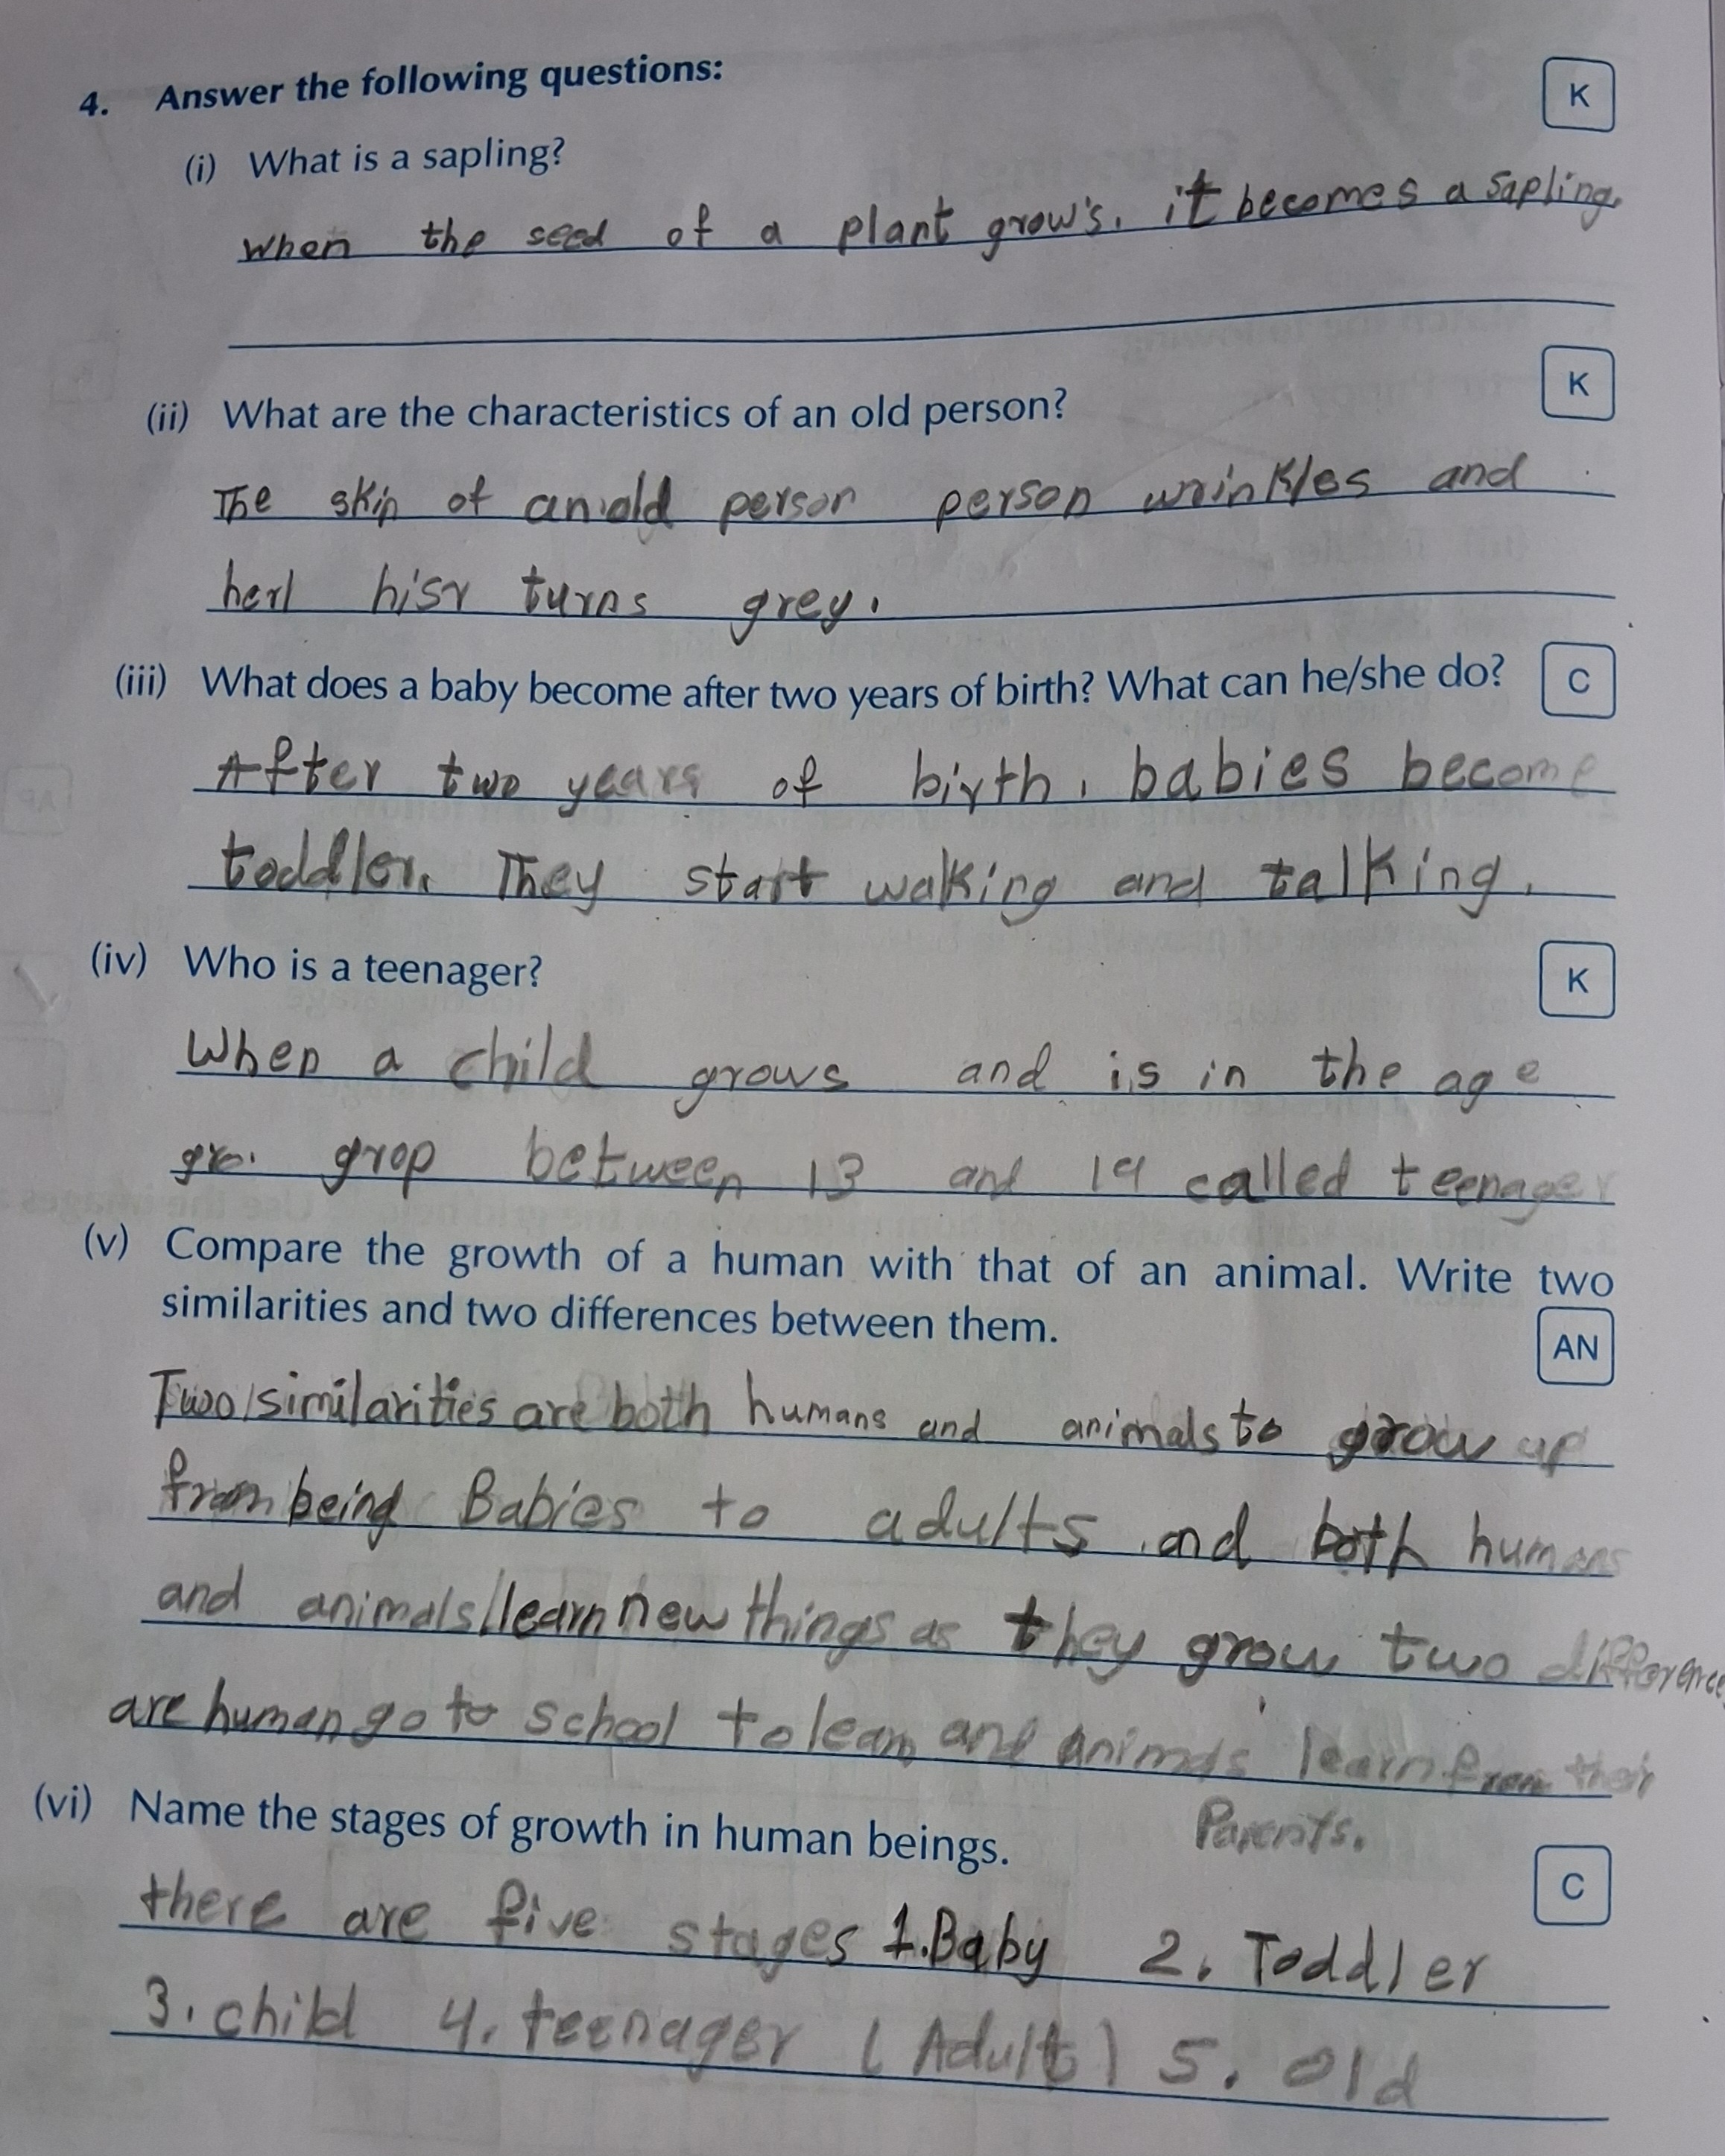 4. Answer the following questions:
K
(i) What is a sapling?
When the seed of a plant grow's. it becomes a sapling.
K
(ii) What are the characteristics of an old person?
The skin of an old person person wrinkles and
herl hisr turns grey.
(iii) What does a baby become after two years of birth? What can he/she do? C
After two years of birth, babies become
toddler. They start walking and talking.
(iv) Who is a teenager? K
When a child grows and is in the age
gro. grop between 13 and 19 called teenager
(v) Compare the growth of a human with that of an animal. Write two
similarities and two differences between them.
AN
Two similarities are both humans and animals to grow up
from being Babies to adults and both humans
and animals learn new things as they grow two difference
are human go to school to learn and animals learn from their
Parents.
(vi) Name the stages of growth in human beings.
C
there are five stages 1. Baby 2. Toddler
3. child 4. teenager (Adult) 5. old